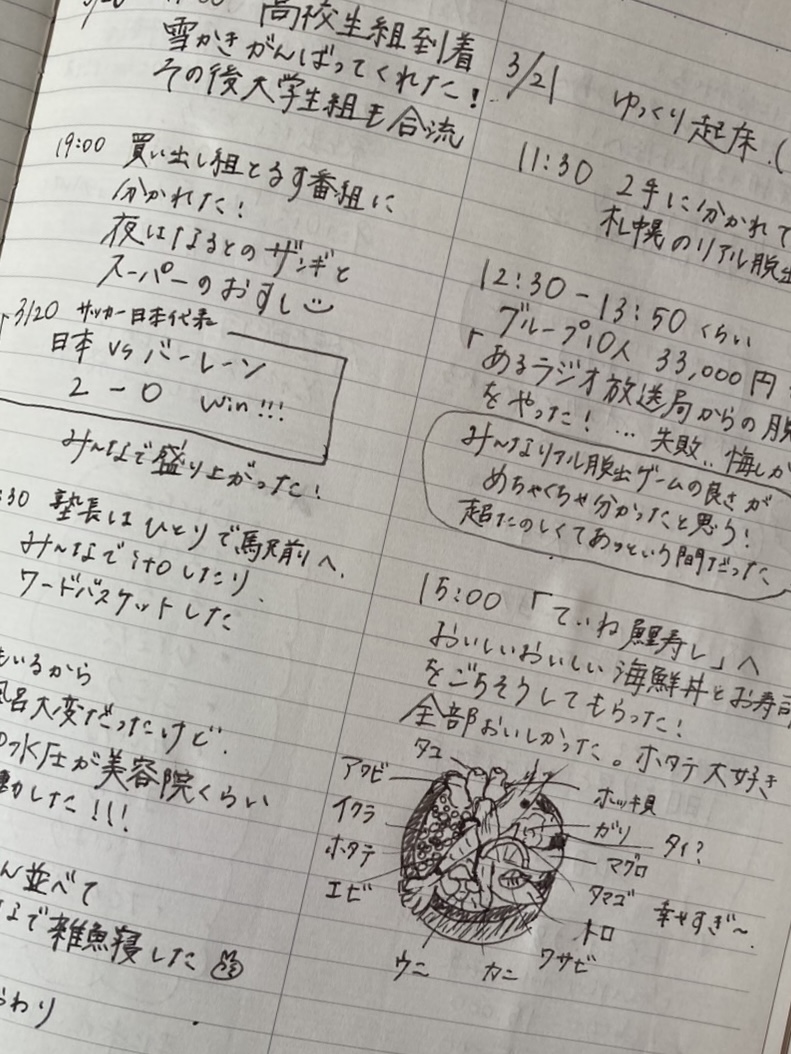 高校生組到着
雪かきがんばってくれた!
その後大学生組も合流
19:00 買い出し組とるす番組に
分かれた!
夜はなるとのザンギと
スーパーのおすし
3/20 サッカー日本代表
日本 vs バーレーン
2-0 win!!!
み〜なで盛り上がった!
:30 塾長はひとりで駅前へ、
み〜なでitoしたり、
ワードバスケットした
もいるから
風呂大変だったけど、
の水圧が美容院くらい
動した!!!
ん並べて
なで雑魚寝した
おわり
3/21 ゆっくり起床.(
11:30 2手に分かれて
札幌のリアル脱出
12:30-13:50 くらい
グループ10人 33,000円
「あるラジオ放送局からの脱
をやった! … 失敗.. 悔しか
み〜なリアル脱出ゲームの良さが
めちゃくちゃ分かったと思う!
超たのしくてあっという間だった
15:00 「ていね鯉寿し」へ
おいしいおいしい海鮮丼とお寿司
をごちそうしてもらった!
全部おいしかった。ホタテ大好き
タコ
アワビ
イクラ
ホタテ
エビ
ウニ
カニ
ワサビ
トロ
タマゴ
マグロ
ガリ
ホッキ貝
タイ?
幸せすぎ〜